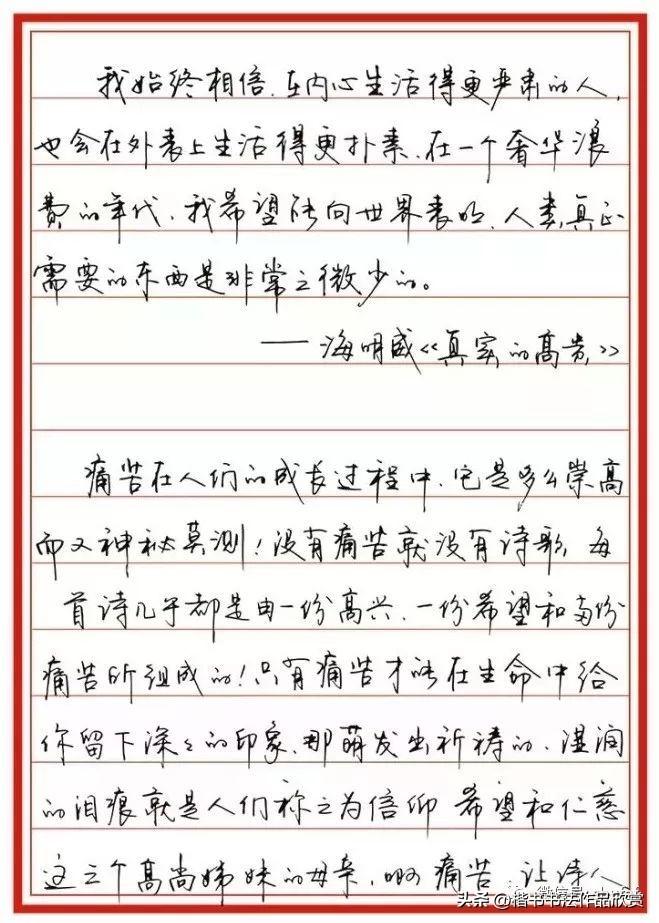 我始终相信，在内心生活得更严肃的人，
也会在外表上生活得更朴素，在一个奢华浪
费的年代，我希望能向世界表明，人类真正
需要的东西是非常之微少的。
——海明威《真实的高贵》
痛苦在人们的成长过程中，它是多么崇高
而又神秘莫测！没有痛苦就没有诗歌，每
首诗几乎都是由一份高兴、一份希望和两份
痛苦所组成的！只有痛苦才能在生命中给
你留下深々的印象，那萌发出祈祷的、湿润
的泪痕就是人们称之为信仰 希望和仁慈
这三个高尚姊妹的母亲，啊 痛苦，让诗人
头条 @楷书书法作品欣赏